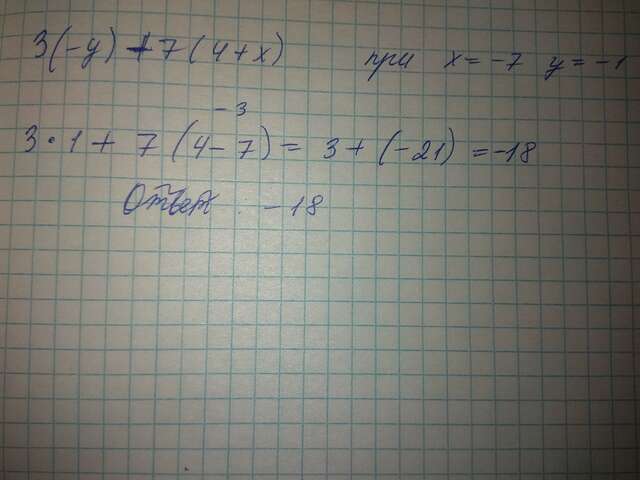 3(-y) + 7(4+x) при x = -7 y = -1
-3
3 · 1 + 7 (4 - 7) = 3 + (-21) = -18
Ответ : -18